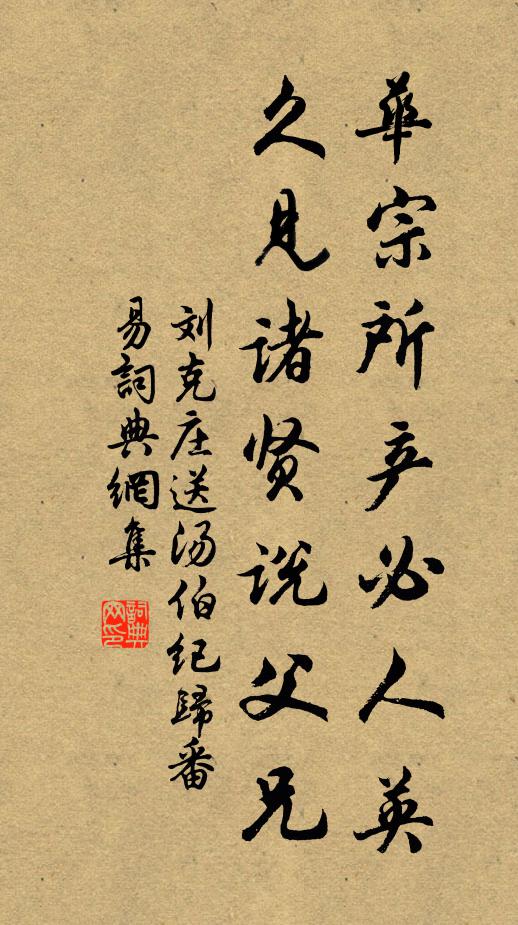 華宗所产必人英
久見诸贤说父兄
刘克庄送汤伯纪歸番
易詞典網集
詞典网印